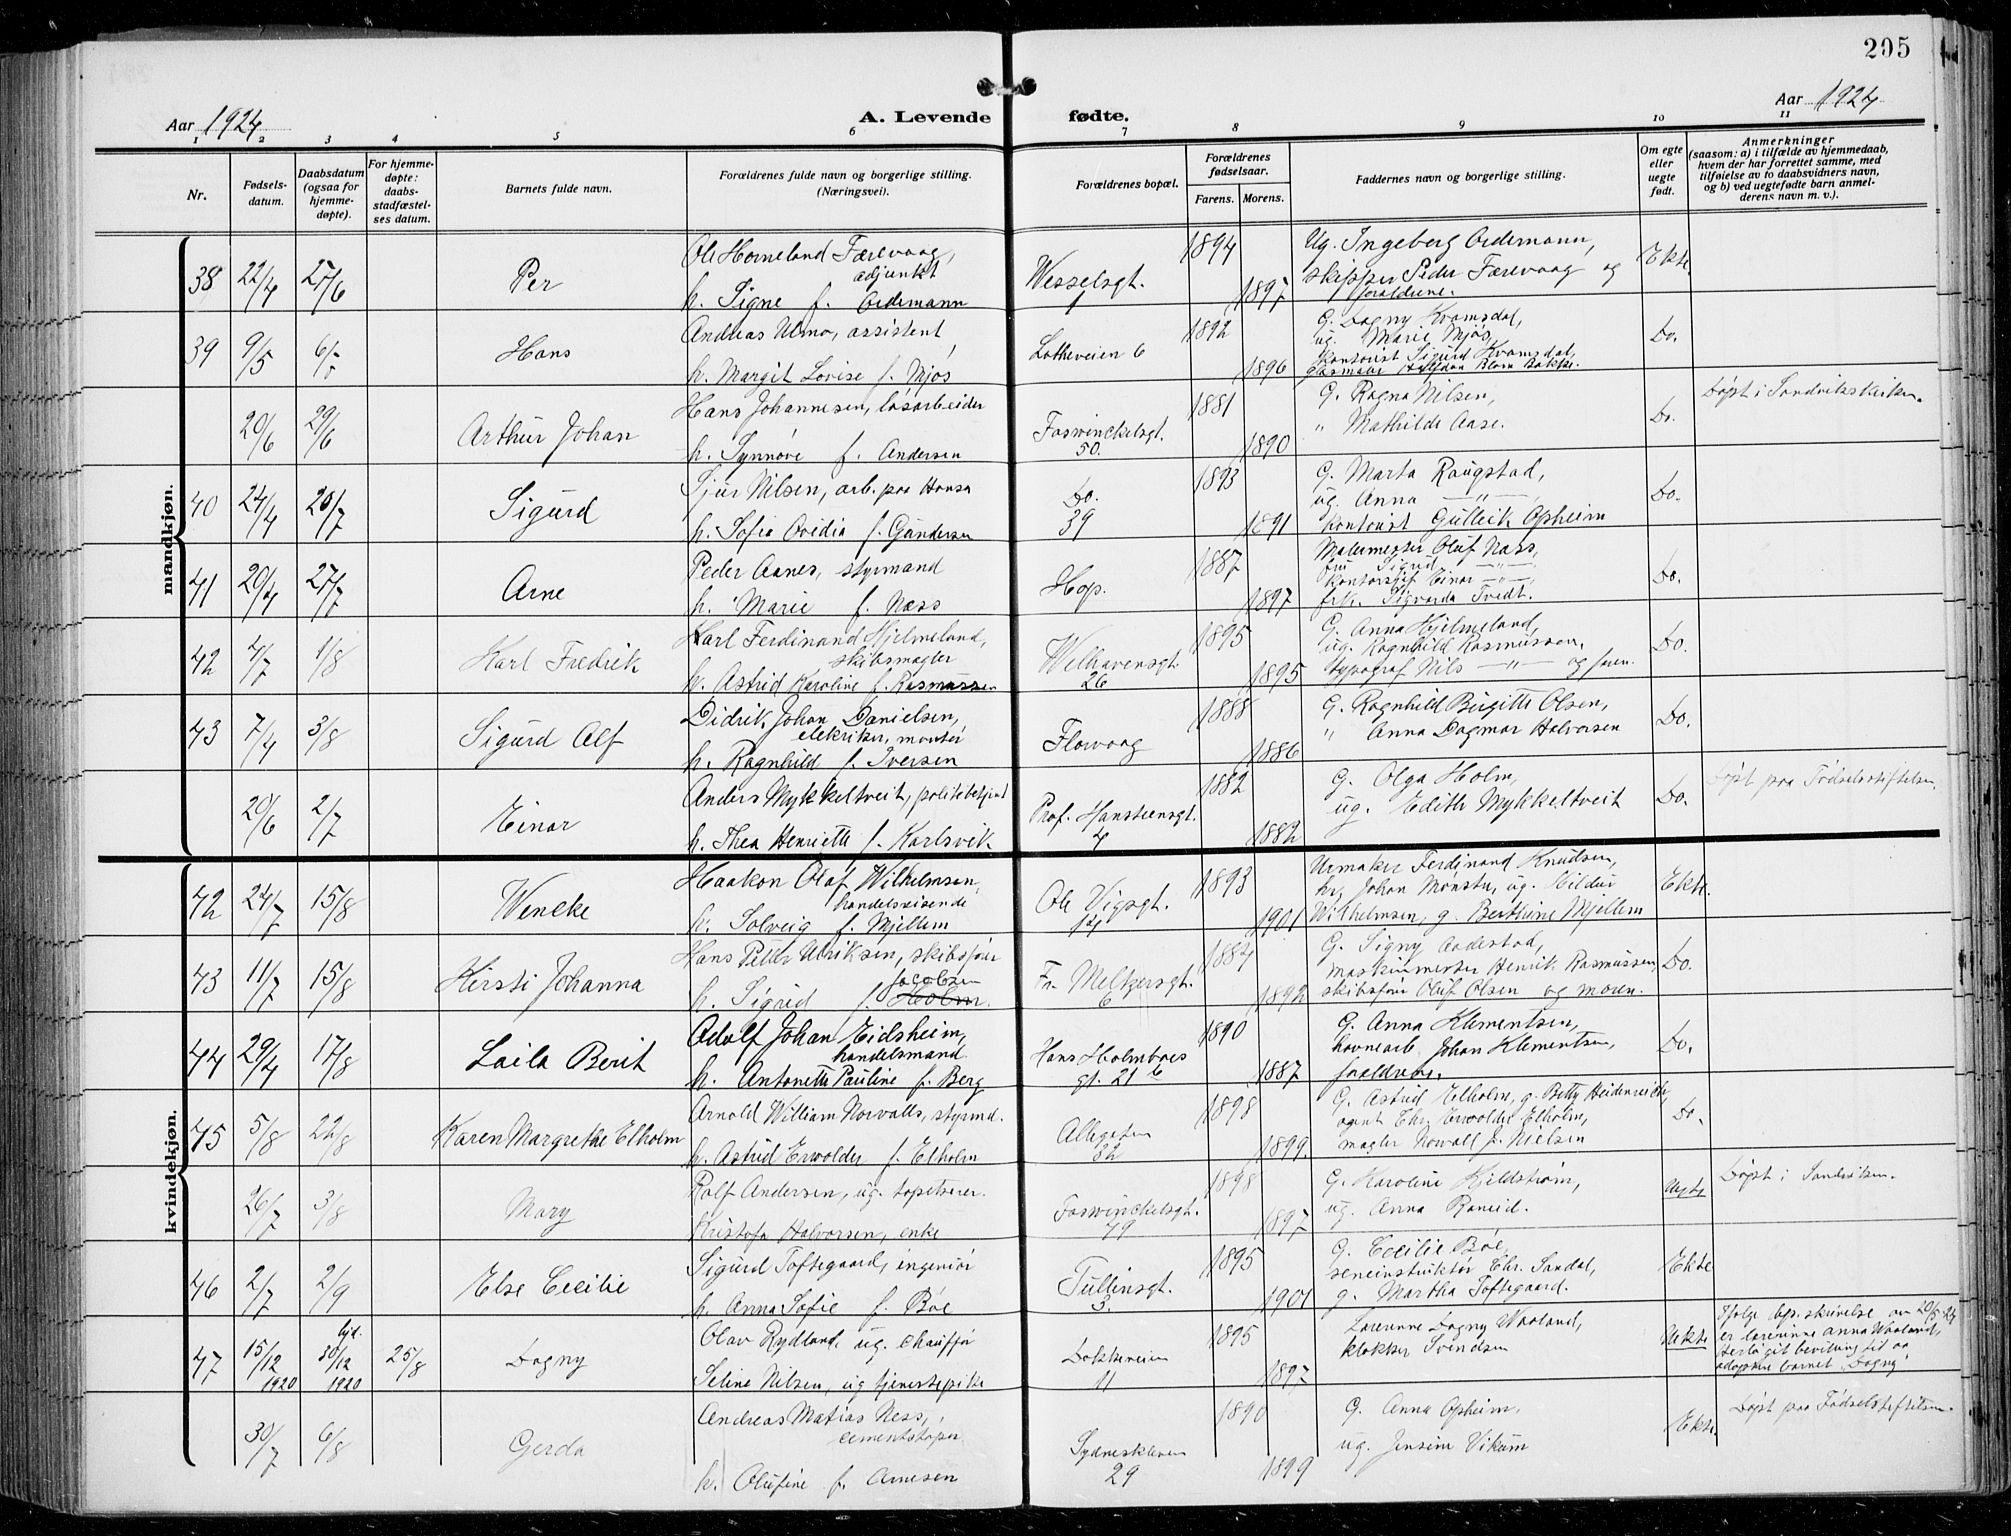 205
Aar 1924
A. Levende fødte.
Aar 1924
1 2 3 4 5 6 7 8 9 10 11
Nr.
Fødsels-
datum.
Daabsdatum
(ogsaa for
hjemme-
døpte).
For hjemme-
døpte:
daabs-
stadfæstel-
ses datum.
Barnets fulde navn.
Forældrenes fulde navn og borgerlige stilling.
(Næringsvei).
Forældrenes bopæl.
Forældrenes
fødselsaar.
Farens. Morens.
Faddernes navn og borgerlige stilling.
Om egte
eller
uegte
født.
Anmerkninger
(saasom: a) i tilfælde av hjemmedaab,
hvem der har forrettet samme, med
tilføielse av to daabsvidners navn,
og b) ved uegtefødte barn anmel-
derens navn m. v.).
mandkjøn.
38 22/4 27/6 Per
Ole Horneland Færevaag,
adjunkt
h. Signe f. Ordemann
Wesselsgt.
1
1894 1897
Ug. Ingeberg Ordemann,
skipper Peder Færevaag og
foraldrene.
Ekte.
39 9/5 Hans
Andreas Urnø, assistent,
h. Margit Lovise f. Mjøs
Lotheveien 6
1892 1896
G. Dagny Kvamsdal,
ug. Marie Mjøs,
kontorist Sigurd Kvamsdal,
Do.
20/6 29/6 Arthur Johan
Hans Johannesen, løsarbeider
h. Synnøve f. Andersen
Foswinckelsgt.
50.
1881 1890
G. Ragna Nilsen,
" Mathilde Aase.
Do.
Døpt i Sandvikskirken.
40 24/4 20/7 Sigurd
Sjur Nilsen, arb. paa Hansa
h. Sofie Ovidia f. Gundersen
Do.
39
1893 1891
G. Marta Raugstad,
ug. Anna —"—,
kontorist Gulleik Opheim
Do.
41 20/4 27/7 Arne
Peder Aanes, styrmand
h. Marie f. Næss
Hop.
1887 1897
Malermester Oluf Næss,
fru Sigrid —"—,
Einar —"—,
frk. Sigvarda Tvedt.
Do.
42 4/7 1/8 Karl Fredrik
Karl Ferdinand Hjelmeland,
skibsmægler
h. Astrid Karoline f. Rasmussen
Welhavensgt.
26
1895 1895
G. Anna Hjelmeland,
ug. Ragnhild Rasmussen,
typograf Nils —"— og faren.
Do.
43 7/4 3/8 Sigurd Alf
Didrik Johan Danielsen,
elektriker, montør
h. Ragnhild f. Iversen
Florvaag
1888 1886
G. Ragnhild Birgitte Olsen,
" Anna Dagmar Halvorsen
Do.
20/6 2/7 Einar
Anders Mykkeltveit, politibetjent
h. Thea Henriette f. Karlsvik
Prof. Hansteensgt.
4
1882 1882
G. Olga Holm,
ug. Edith Mykkeltveit
Do.
Døpt paa Fødselsstiftelsen.
kvindekjøn.
42 24/7 15/8 Wencke
Haakon Olaf Wilhelmsen,
handelsreisende
h. Solveig f. Mjellem
Ole Vigsgt.
14
1893 1901
Urmaker Ferdinand Knudsen,
hr. Johan Monster, ug. Hildur
Wilhelmsen, g. Berthine Mjellem
Ekte.
43 11/7 15/8 Kirsti Johanna
Hans Petter Ulriksen, skibsfører
Jacobsen
h. Sigrid f. Holm.
Fr. Meltzersgt.
6
1884 1892
G. Signy Aadestad,
maskinmester Henrik Rasmussen,
skibsfører Oluf Olsen og moren.
Do.
44 29/4 17/8 Laila Berit
Adolf Johan Eidsheim,
handelsmand.
h. Antonette Pauline f. Berg
Hans Holmboes
gt. 21 b
1890 1887
G. Anna Klementsen,
havnearb. Johan Klementsen,
foraldrene.
Do.
45 5/8 22/8 Karen Margrethe Elholm
Arnold William Norvalls, styrmd.
h. Astrid Erwolder f. Elholm
Allegaten
32
1898 1899.
G. Astrid Elholm, g. Betty Heidenreich
agent Chr. Erwolder Elholm,
magler Norvall f. Nielsen
Do.
26/7 3/8 Mary
Rolf Andersen, ug. tapetserer.
Kristofa Halvorsen, enke
Foswinckelsgt.
49
1898 1897
G. Karoline Kjeldstrøm,
ug. Anna Raneid.
Uegte
Døpt i Sandviken.
46 2/7 2/9 Else Cecilie
Sigurd Toftegaard, ingeniør
h. Anna Sofie f. Bøe
Tullinsgt.
3.
1895 1901
G. Cecilie Bøe,
Chr. Sandal,
g. Martha Toftegaard.
Ekte
47 15/12 1920 hjd. 30/12 1920 25/8 Dagny
Olav Rydland, ug. chauffør
Seline Nilsen, ug tjenestepike
Dokkeveien
11
1895 1897
Lærerinne Dagny Waaland,
klokker Svendsen
Uekte
Ifølge bps. skrivelse av 20/8-24
er lærerinne Anna Waaland,
bevilling til at
adoptere barnet "Dagny".
30/7 6/8 Gerda
Andreas Matias Ness,
cementstøper
h. Olufine f. Arnesen
Sydneskleven
29
1890 1899
G. Anna Opheim,
ug. Jensine Vikum
Ekte.
Døpt paa Fødselsstiftelsen.